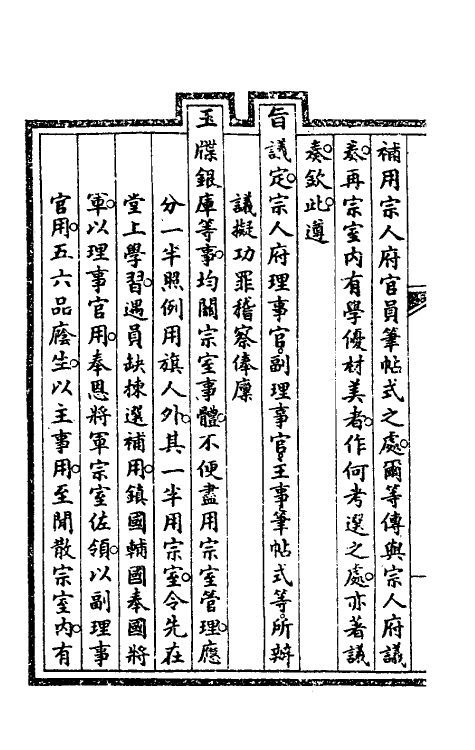 補用宗人府官員筆帖式之處爾等傳與宗人府議
奏再宗室內有學優材美者作何考選之處亦著議
奏欽此遵
旨議定宗人府理事官副理事官主事筆帖式等所辦
議擬功罪稽察俸廩
玉牒銀庫等事均關宗室事體不便盡用宗室管理應
分一半照例用旗人外其一半用宗室令先在
堂上學習遇員缺揀選補用鎮國輔國奉國將
軍以理事官用奉恩將軍宗室佐領以副理事
官用五六品廕生以主事用至閒散宗室內有